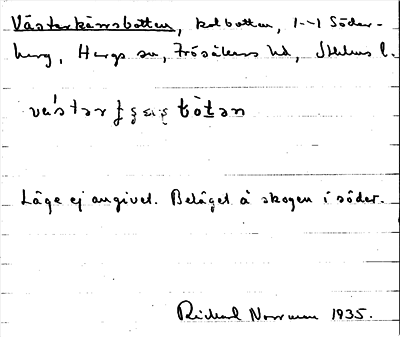 Västerkärrsbotten, kolbotten, 1~1 Söder-
berg, Hargs sn, Frösåkers hd, Sthlms l.
Läge ej angivet. Beläget å skogen i söder.
Richard Norrman 1935.